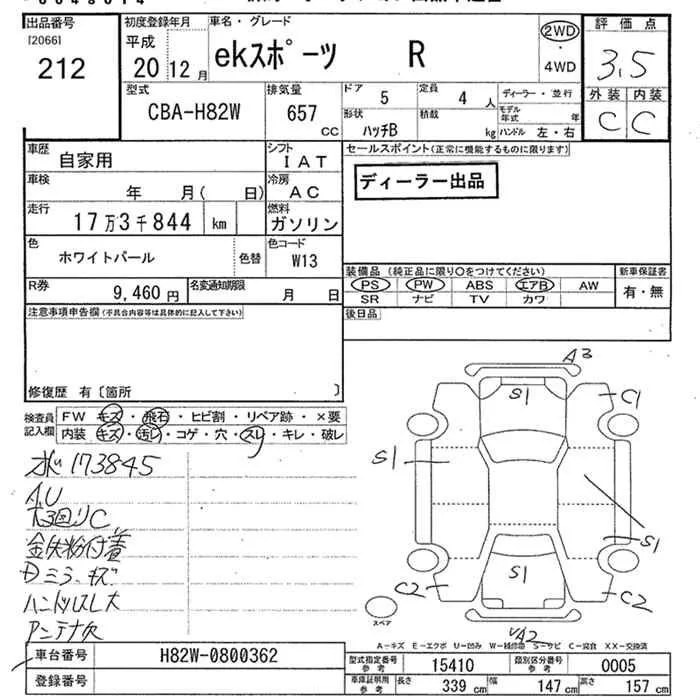 出品番号
[2066]
212
初度登録年月
平成
20 12 月
車名・グレード
ekスポーツ R
2WD
・
4WD
評価点
3.5
外装 内装
C C
型式
CBA-H82W
排気量
657 cc
ドア
5
定員
4 人
形状
ハッチB
積載
kg
ディーラー・並行
モデル年式 年
ハンドル 左・右
車歴
自家用
シフト
IAT
車検
年 月( 日)
冷房
AC
走行
17万3千844 km
燃料
ガソリン
色
ホワイトパール
色替
色コード
W13
R券
9,460 円
名変通知期限
月 日
セールスポイント(正常に機能するものに限ります)
ディーラー出品
装備品 (純正品に限り○をつけてください)
PS PW ABS エアB AW
SR ナビ TV カワ
新車保証書
有・無
後日品
注意事項申告欄(不具合内容等は具体的に記入して下さい)
修復歴 有〔箇所 〕
検査員記入欄
FW キズ・飛石・ヒビ割・リペア跡・×要
内装 キズ・汚レ・コゲ・穴・スレ・キレ・破レ
173845
AU
下回りC
金失粉付着
Dミラーキズ
ハンドルスレ大
アンテナ欠
A3
S1
C1
S1
S1
C2
S1
C2
A2
スペア
A-キズ E-エクボ U-凹み W-補修跡 S-サビ C-腐食 XX-交換済
車台番号
H82W-0800362
登録番号
型式指定番号 参考
15410
類別区分番号 参考
0005
車庫証明用 参考
長さ 339 cm 幅 147 cm 高さ 157 cm